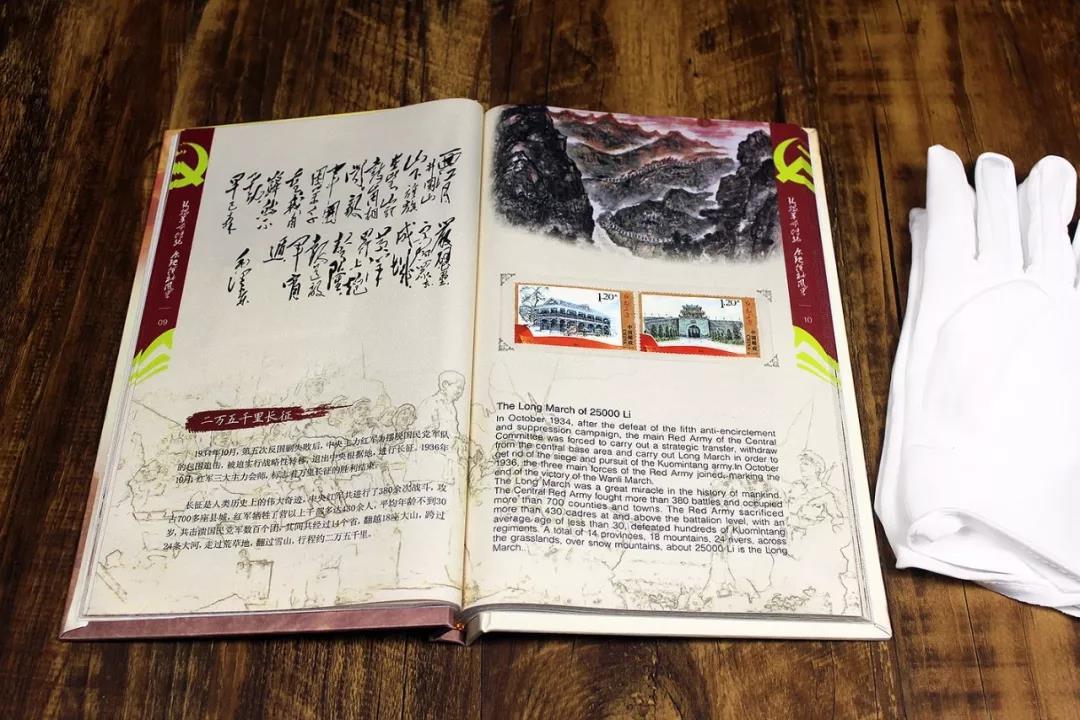 西江月
井冈山
山下旌旗
鼓角相
早已森
成城
黄洋
界上炮
军宵
遁
毛泽东
09
二万五千里长征
1934年10月，第五次反围剿失败后，中央主力红军为摆脱国民党军队
的包围追击，被迫实行战略性转移，退出中央根据地，进行长征。1936年
10月，红军三大主力会师，标志着万里长征的胜利结束。
长征是人类历史上的伟大奇迹，中央红军共进行了380余次战斗，攻
占700多座县城，红军牺牲了营以上干部多达430余人，平均年龄不到30
岁，共击溃国民党军数百个团，其间共经过14个省，翻越18座大山，跨过
24条大河，走过荒草地，翻过雪山，行程约二万五千里。
10
1.20元
中国邮政
1.20元
中国邮政
The Long March of 25000 Li
In October 1934, after the defeat of the fifth anti-encirclement
and suppression campaign, the main Red Army of the Central
Committee was forced to carry out a strategic transfer, withdraw
from the central base area and carry out Long March in order to
get rid of the siege and pursuit of the Kuomintang army.In October
1936, the three main forces of the Red Army joined, marking the
end of the victory of the Wanli March.
The Long March was a great miracle in the history of mankind.
The Central Red Army fought more than 380 battles and occupied
more than 700 counties and towns. The Red Army sacrificed
more than 430 cadres at and above the battalion level, with an
average age of less than 30, defeated hundreds of Kuomintang
regiments. A total of 14 provinces, 18 mountains, 24 rivers, across
the grasslands, over snow mountains, about 25000 Li is the Long
March.